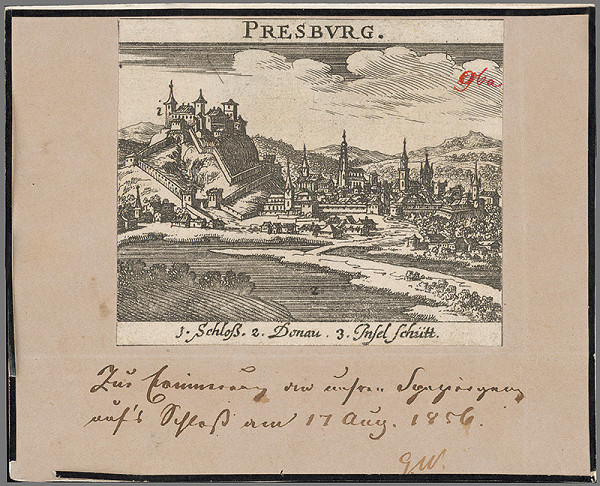 PRESBVRG.
9ba
1. Schloß. 2. Donau. 3. Insel schütt.
2
Zur Erinnerung an unsren Spaziergang
auf's Schloß am 17 Aug. 1856.
GW.